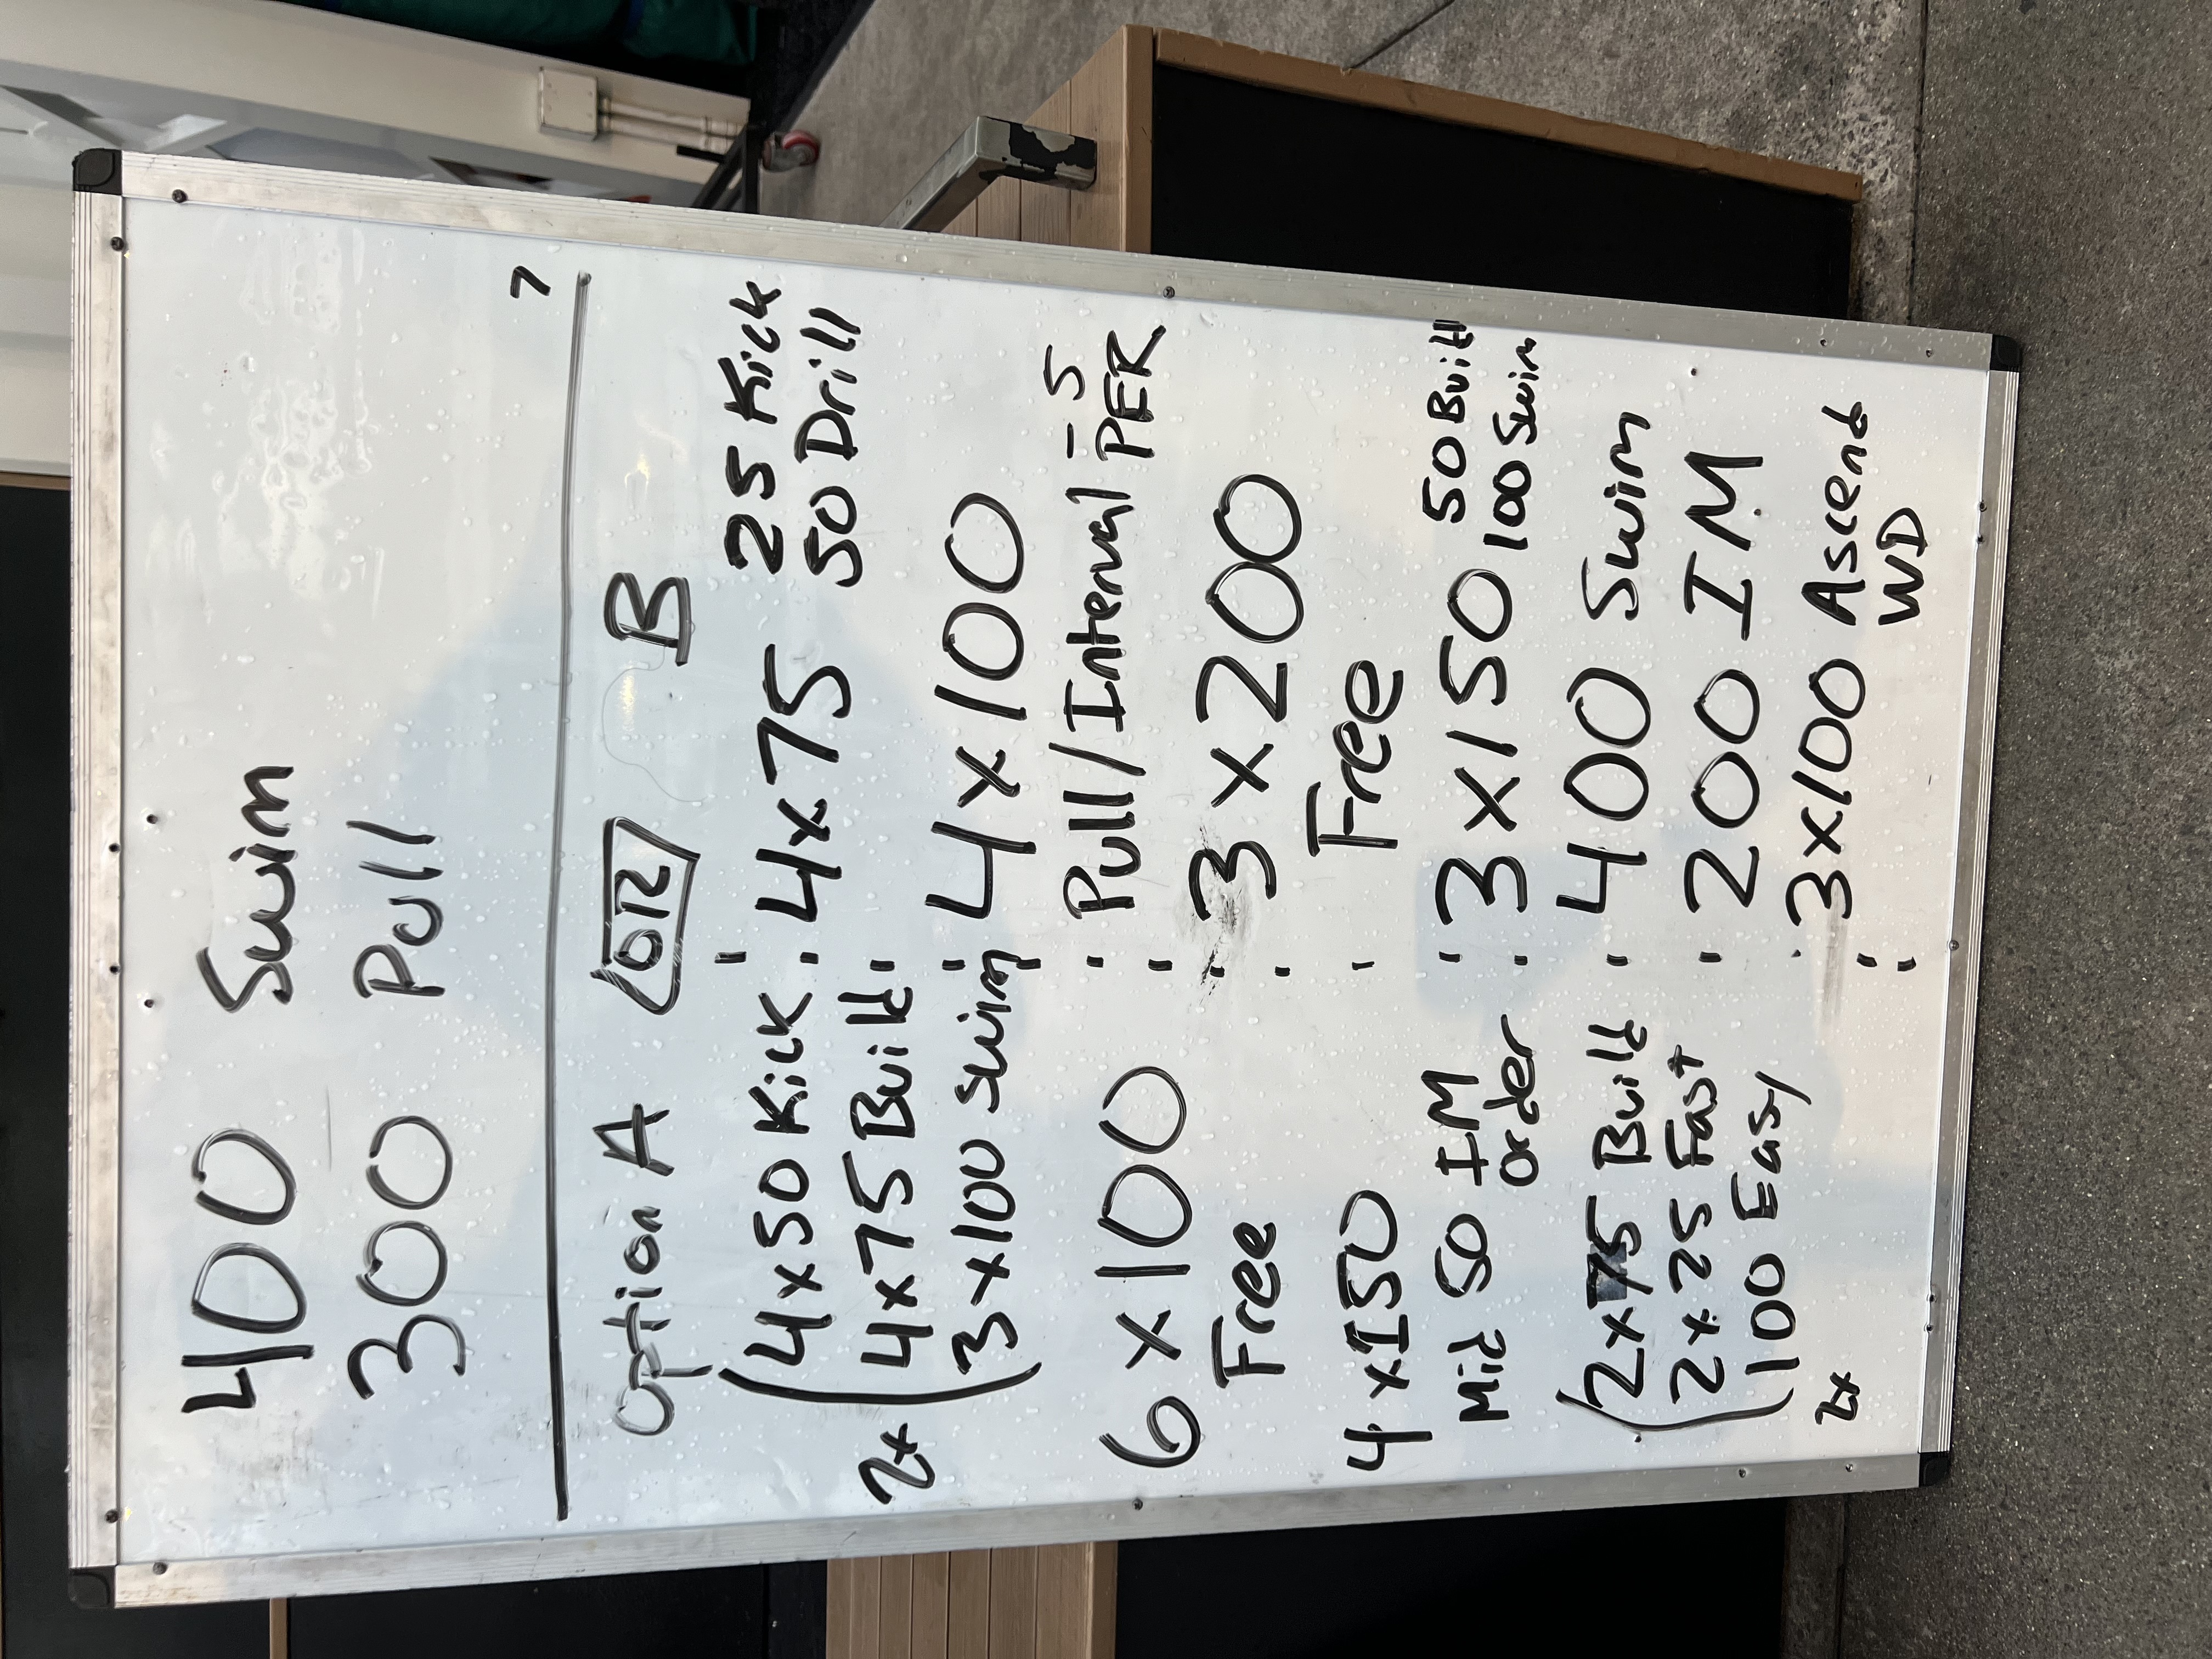 400 Swim
300 Pull
7
Option A OR B
2x (4x50 Kick
4x75 Build
3x100 swim
6x100
Free
4x150
Mid 50 IM
order
(2x75 Build
2x25 Fast
100 Easy
2x
4x75 25 Kick
50 Drill
4x100
Pull/Interval -5
PER
3x200
Free
3x150 50 Build
100 Swim
400 Swim
200 IM
3x100 Ascend
WD